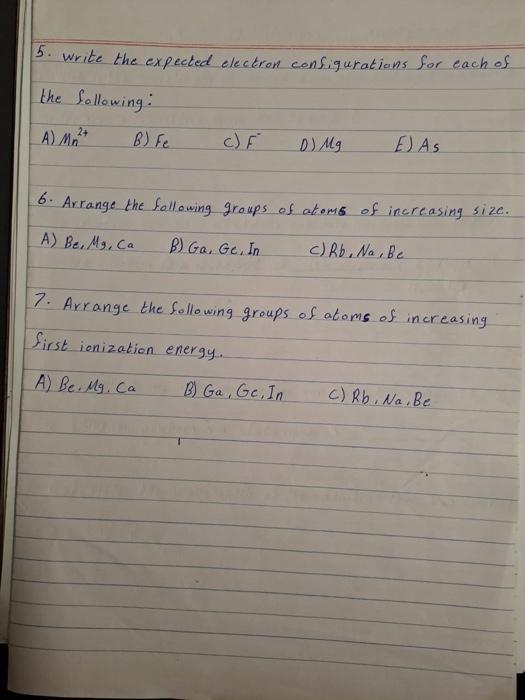 5. Write the expected electron configurations for each of
the following:
A) Mn²⁺ B) Fe C) F⁻ D) Mg E) As
6. Arrange the following groups of atoms of increasing size.
A) Be, Mg, Ca B) Ga, Ge, In C) Rb, Na, Be
7. Arrange the following groups of atoms of increasing
first ionization energy.
A) Be, Mg, Ca B) Ga, Ge, In C) Rb, Na, Be